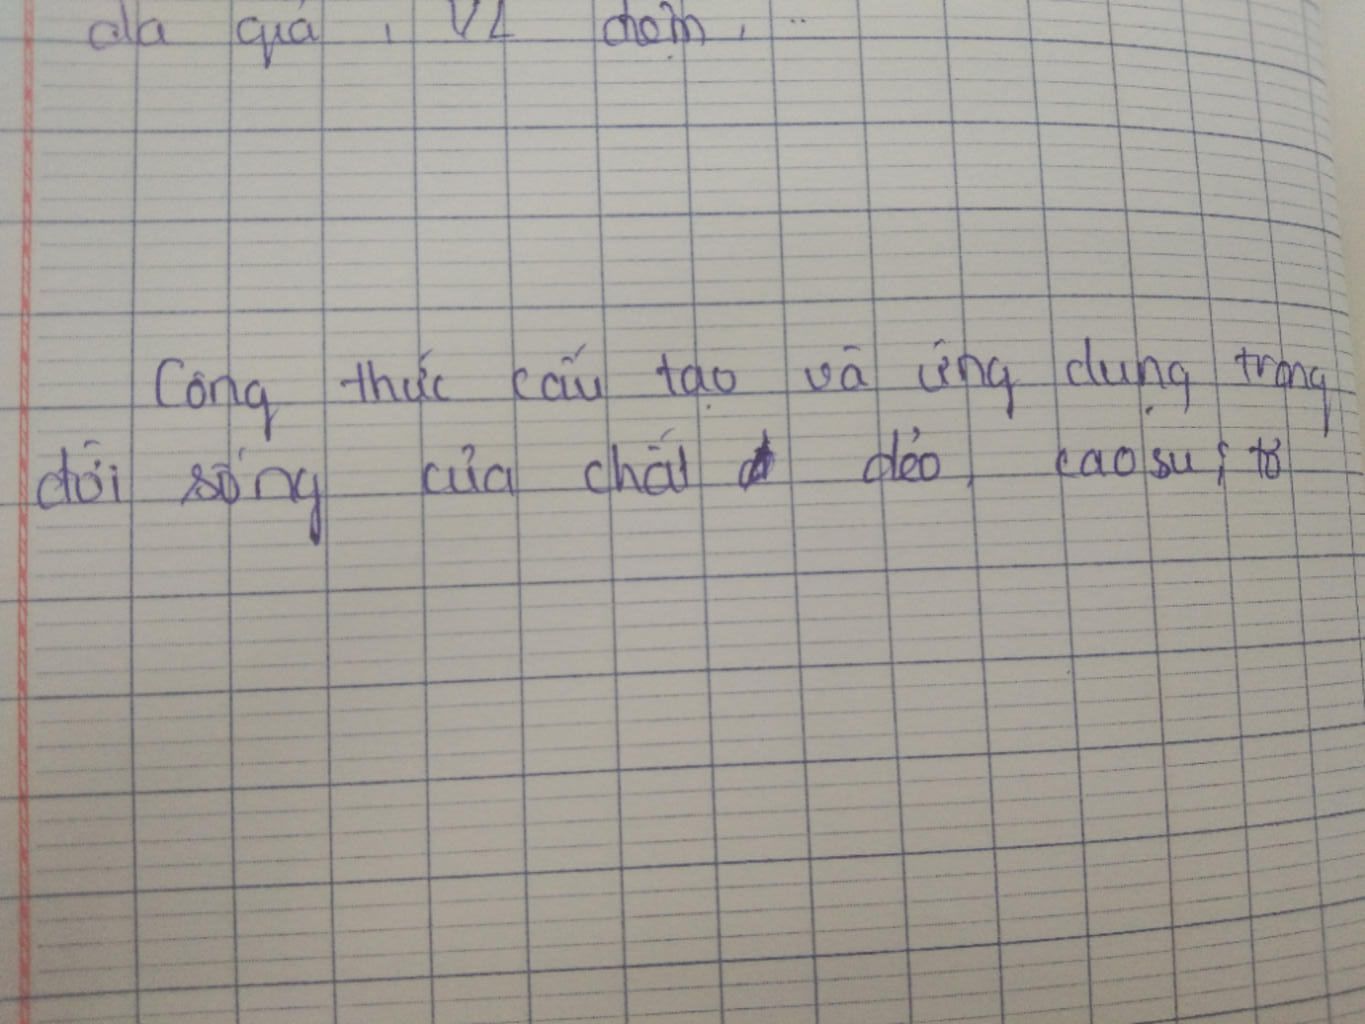 da quá, VL chậm, ..
Công thức cấu tạo và ứng dụng trong
đời sống của chất dẻo, cao su, tơ